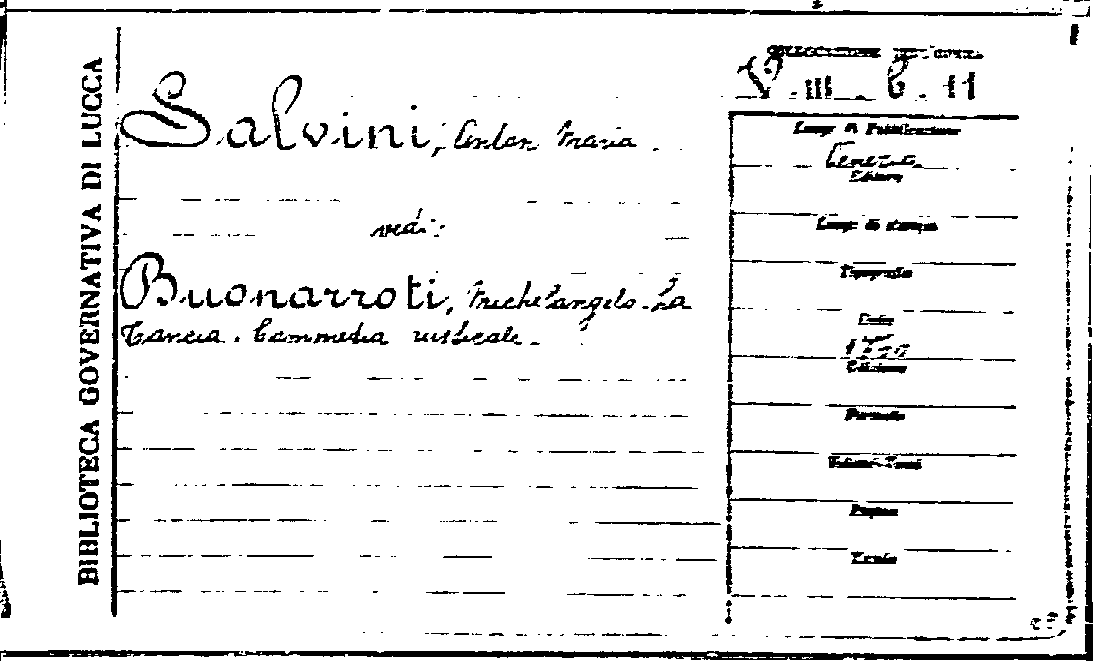 BIBLIOTECA GOVERNATIVA DI LUCCA
Salvini, Anton Maria.
vedi:
Buonarroti, Michelangelo. La
Tancia. Commedia rusticale.
V. III. b. 11
Luogo di Pubblicazione
Venezia
Editore
Luogo di stampa
Tipografia
Data
Edizione
Formato
Volumi-Tomi
Pagine
Tavole